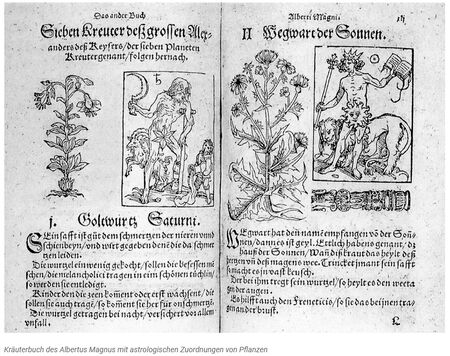 Das ander Buch
Sieben Kreuter deß grossen Alex-
anders deß Keysers/ der sieben Planeten
Kreuter genant/ folgen hernach.
♄
j. Goltwurtz Saturni.
SEin safft ist gůt dem schmertzen der nieren und
schienbeyn/ und wirt gegeben denē die da schmer-
tzen leiden.
Die wurtzel ein wenig gekocht/ sollen die besessen mē-
schen/ die melancholici tragen in eim schönen tüchlin/
so werden sie entledigt.
Kinder den die zeen komēt oder erst wachsent/ die
sollen sie auch tragē/ so komēt sie her für on schmertzē.
Die wurtzel getragen bei nacht/ versichert vor allem
unfall.
Alberti Magni.
II Wegwart der Sonnen.
WEgwart hat den namē empfangen vō der Soñ-
nen/ dann es ist geyl. Etlich haben s genant/ dz
hauß der Sonnen/ Wañ diß kraut das heylt deß
hertzen uñ deß magens wee. Trincket jmant sein safft
so macht es jn vast keusch.
Der bei ihm tregt sein wurtzel/ so heylt es den weeta-
gen der augen.
Es hilfft auch den Freneticis/ so sie das bei jnen tra-
gen an der brust.
Kräuterbuch des Albertus Magnus mit astrologischen Zuordnungen von Pflanzen